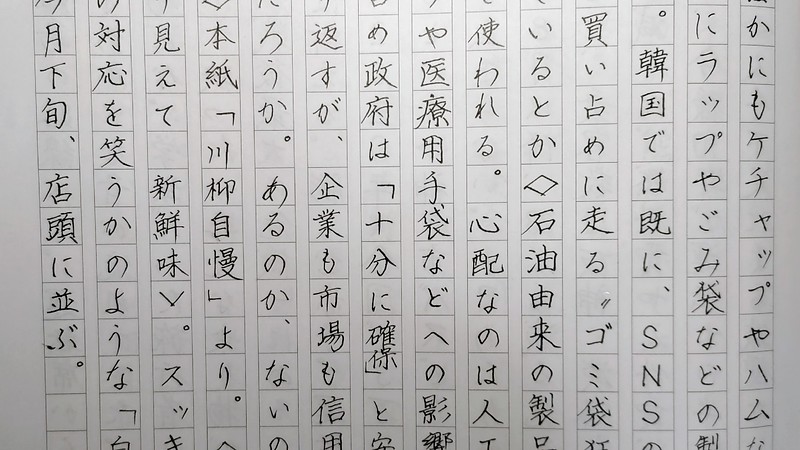 かにもケチャップやハムな
にラップやごみ袋などの製
。韓国では既に、SNSの
買い占めに走る〝ゴミ袋狂
いるとか◇石油由来の製品
使われる。心配なのは人工
や医療用手袋などへの影響
め政府は「十分に確保」と安
返すが、企業も市場も信用
ろうか。あるのか、ないの
◇本紙「川柳自慢」より。へ
見えて 新鮮味＞。スッキ
の対応を笑うかのような「白
今月下旬、店頭に並ぶ。